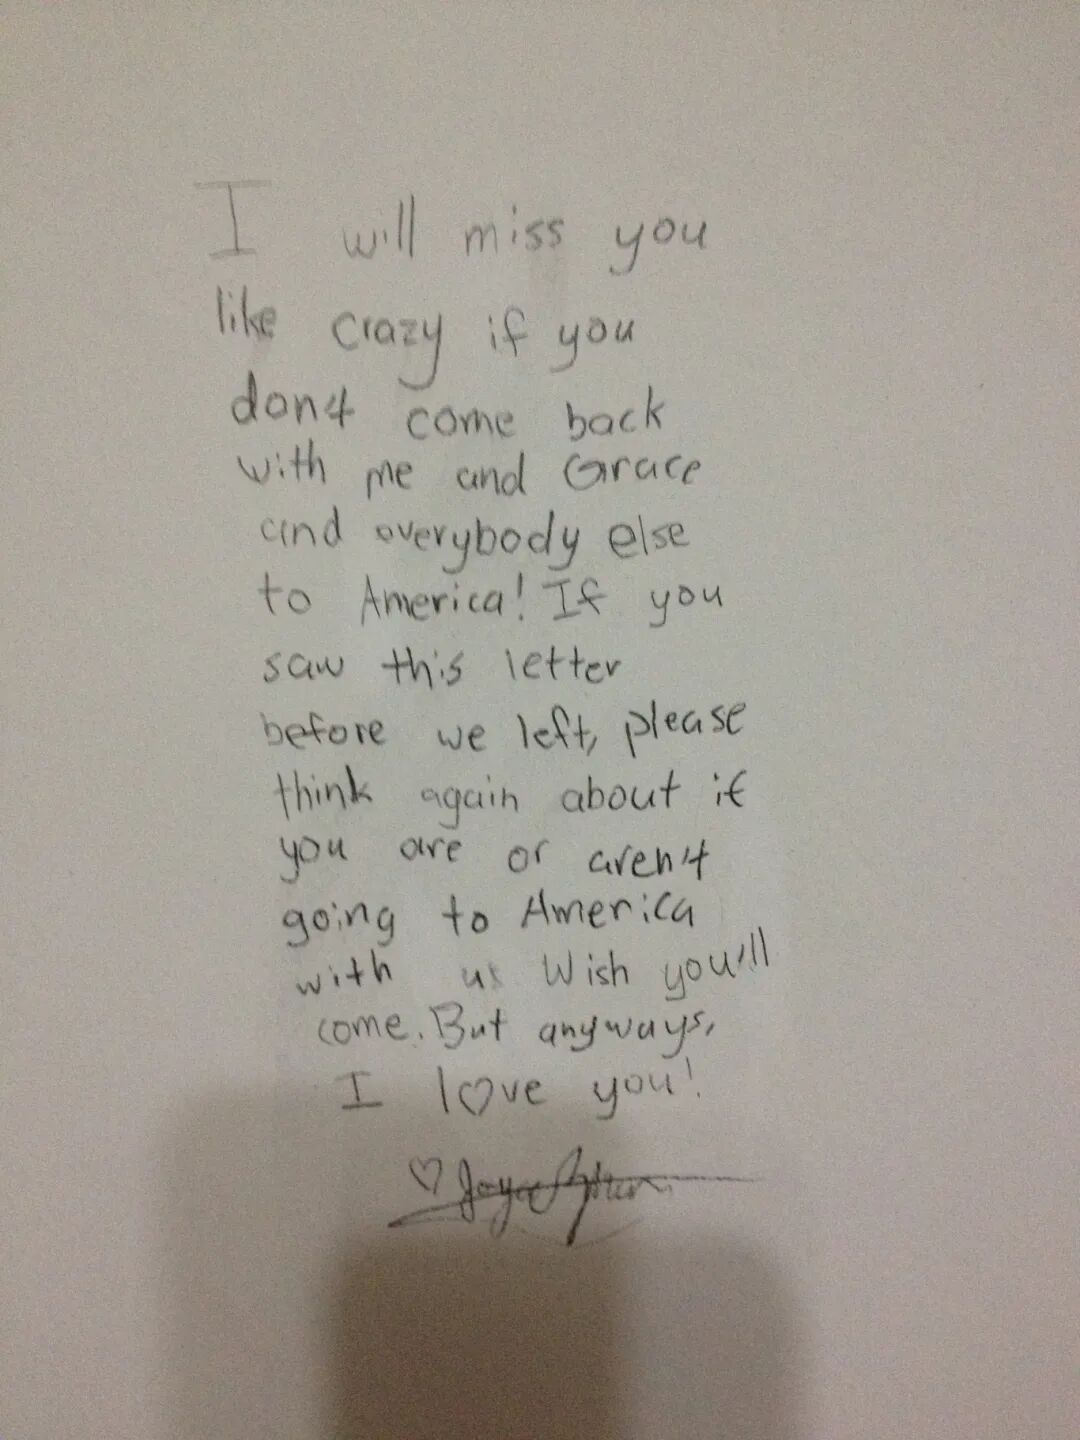 I will miss you
like crazy if you
don4 come back
with me and Grace
and everybody else
to America! If you
saw this letter
before we left, please
think again about if
you are or aren4
going to America
with us Wish you'll
come. But anyways,
I l♡ve you!
♡ Joyce